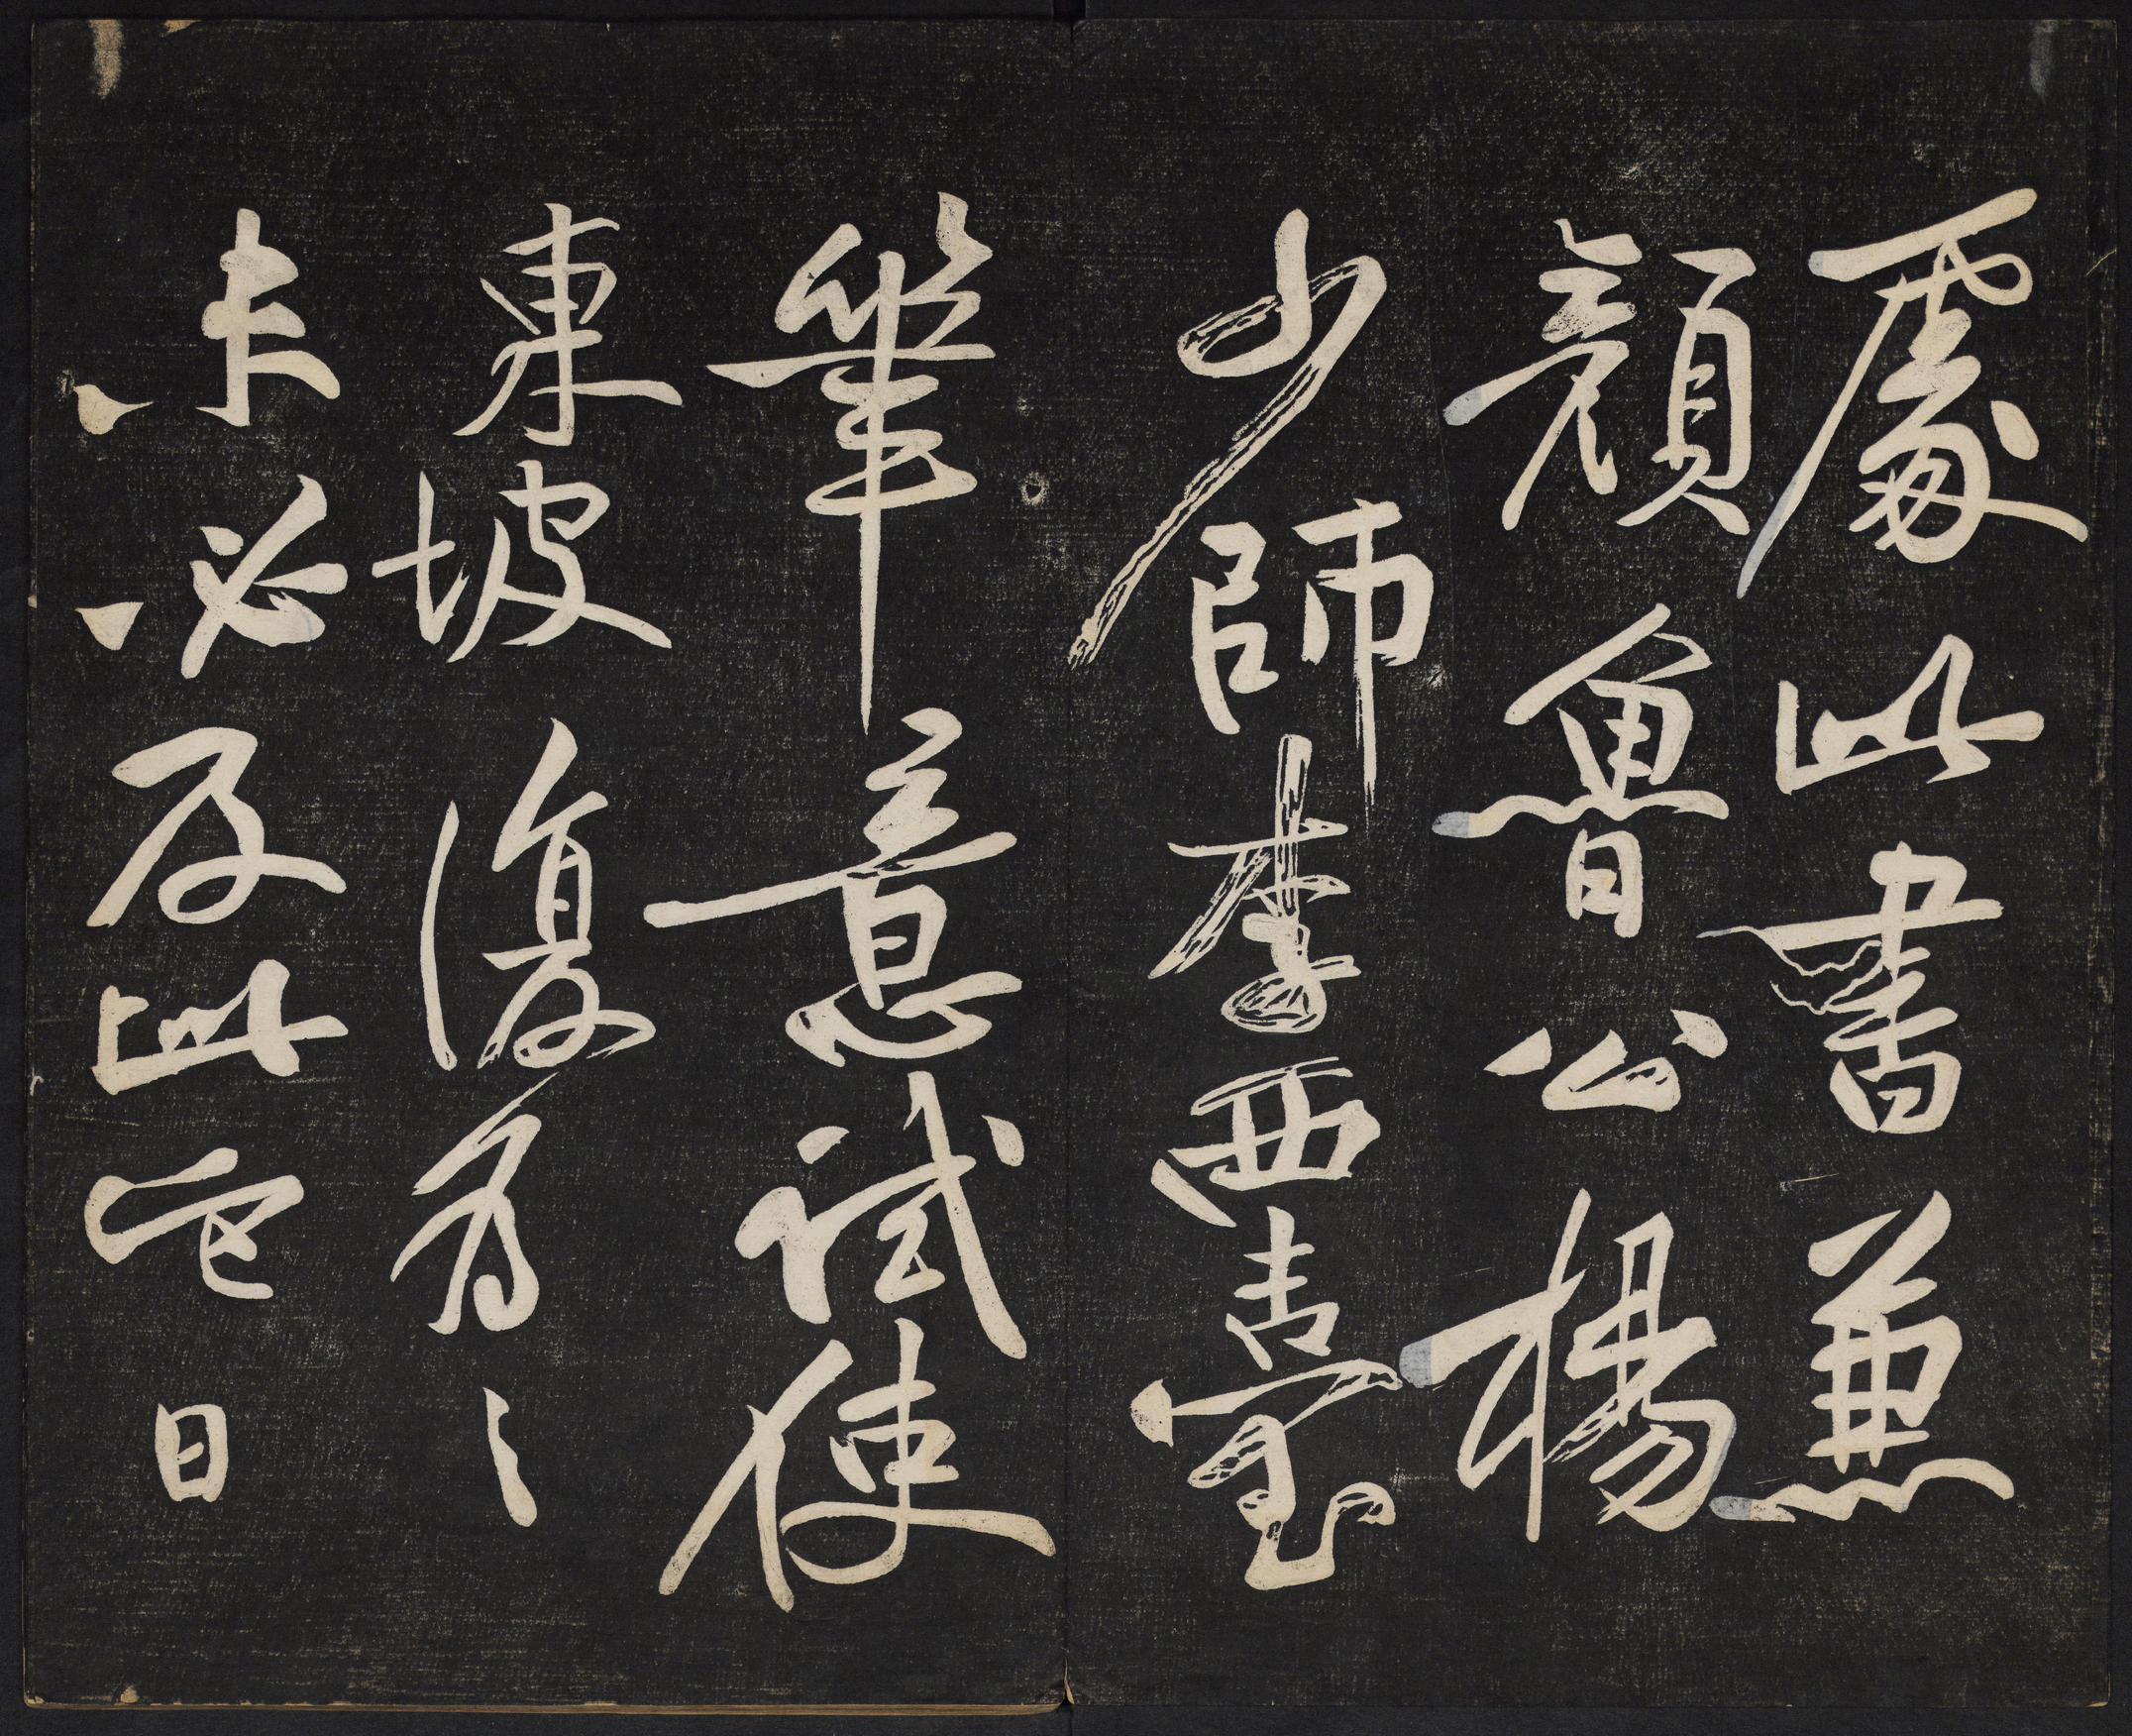 處此書兼
顏魯公楊
少師李西臺
筆意試使
東坡復為之
未必及此它日